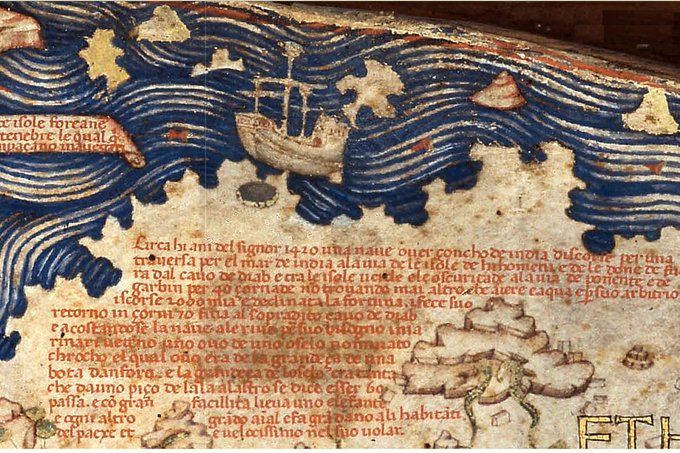 isole foreane
tenebre le qual
Circa hi ani del signor 1420 una naue ouer çoncho de india discorse per una
trauersa per el mar de india a la uia de le isole de hi homeni e de le done de fu
ra dal cauo de diab e tra le isole uerde e le oscuritade a la uia de ponente e de
garbin per 40 çornade non trouando mai altro che aiere e aqua e per suo arbitrio
iscorse 2000 mia e declinata la fortuna i fece suo
retorno in çorni 70 fina al sopradito cauo de diab
e acostandose la naue a le riue per suo bisogno i ma
rinari uedeno uno ouo de uno oselo nominato
chrocho el qual ouo era de la grandeça de una
bota d'anfora e la grandeça de l'oselo era tanta
che da uno piço de l'ala a l'altro se dice esser 60
passa e con gran facillità lieua uno elefante
e ogni altro grando aial e fa gran dano a li habitanti
del paexe et e uelocissimo nel suo uolar
ETH